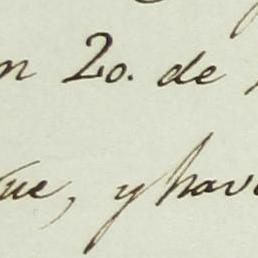 n 20. de
ue, y hav